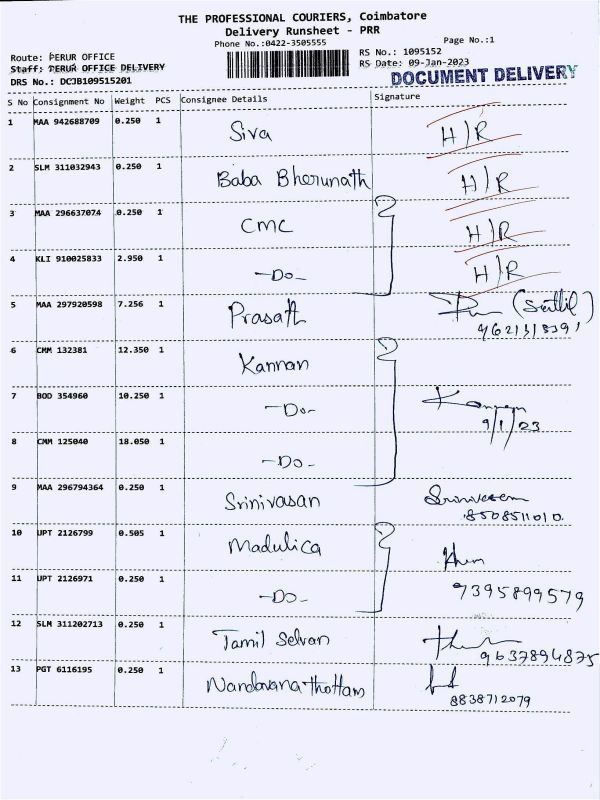 THE PROFESSIONAL COURIERS, Coimbatore
Delivery Runsheet - PRR
Phone No.:0422-3505555
Page No.:1
Route: PERUR OFFICE
RS No.: 1095152
Staff: PERUR OFFICE DELIVERY
RS Date: 09-Jan-2023
DRS No.: DCJB109515201
DOCUMENT DELIVERY
S No Consignment No Weight PCS Consignee Details Signature
1 MAA 942688709 0.250 1 Siva H/R
2 SLM 311032943 0.250 1 Baba Bherunath H/R
3 MAA 296637074 0.250 1 CMC H/R
4 KLI 910025833 2.950 1 -Do- H/R
5 MAA 297920598 7.256 1 Prasath
6 CMM 132381 12.350 1 Kannan
7 BOD 354960 10.250 1 -Do- Kannan
9/1/23
8 CMM 125040 18.050 1 -Do-
9 MAA 296794364 0.250 1 Srinivasan Srinivasan
8508511010.
10 UPT 2126799 0.505 1 Madulica
11 UPT 2126971 0.250 1 -Do- 7395899579
12 SLM 311202713 0.250 1 Tamil Selvan
9637894875
13 PGT 6116195 0.250 1 Nandavana Thottam
8838712079